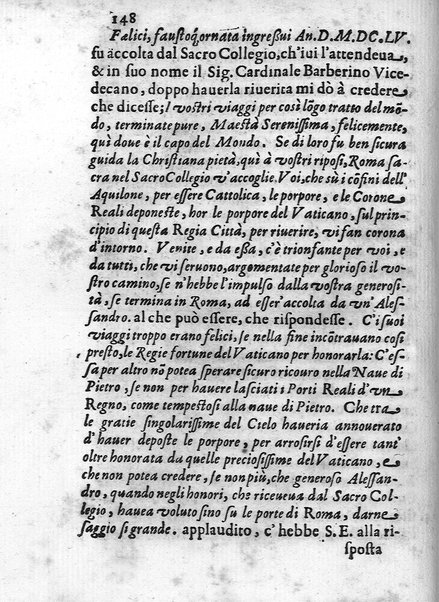 148
Felici, faustoq́; ornata ingreſſui An. D. M. DC. LV.
fu accolta dal Sacro Collegio, ch'iui l'attendeua,
& in ſuo nome il Sig. Cardinale Barberino Vice-
decano, doppo hauerla riuerita mi dò à credere
che diceſſe; I voſtri viaggi per così lõgo tratto del mõ-
do, terminate pure, Maeſtà Sereniſſima, felicemente,
quì doue è il capo del Mondo. Se di loro fu ben ſicura
guida la Chriſtiana pietà, quì à voſtri ripoſi, Roma ſa-
cra nel Sacro Collegio v'accoglie. Voi, che sù i cõfini dell'
Aquilone, per eſſere Cattolica, le porpore, e le Corone
Reali deponeſte, hor le porpore del Vaticano, ſul prin-
cipio di queſta Regia Città, per riuerire, vi fan corona
d'intorno. Venite, e da eßa, c'è trionfante per voi, e
da tutti, che vi ſeruono, argomentate per glorioſo il vo-
ſtro camino, ſe n'hebbe l'impulſo dalla voſtra generoſi-
tà, ſe termina in Roma, ad eſſer'accolta da vn'Aleſ-
ſandro. al che può eſſere, che riſpondeſſe. C'i ſuoi
viaggi troppo erano felici, ſe nella fine incõtrauano coſi
preſto, le Regie fortune del Vaticano per honorarla: C'eſ-
ſa per altro nõ potea ſperare ſicuro ricouro nella Naue di
Pietro, ſe non per hauere laſciati i Porti Reali d'vn
Regno, come tempeſtoſi alla naue di Pietro. Che tra
le gratie ſingolariſſime del Cielo haueria annouerato
d'hauer depoſte le porpore, per arroſirſi d'eſſere tant'
oltre honorata da quelle precioſiſſime del Vaticano, e
che non potea credere, ſe non più, che generoſo Aleſſan-
dro, quando negli honori, che riceueua dal Sacro Col-
legio, hauea voluto ſino ſu le porte di Roma, darne
ſaggio ſi grande. applaudito, c'hebbe S. E. alla ri-
ſpoſta